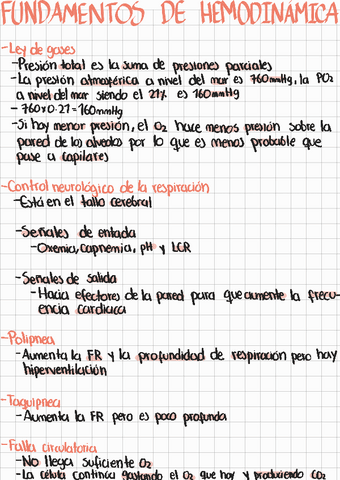 FUNDAMENTOS DE HEMODINÁMICA
-Ley de gases
-Presión total es la suma de presiones parciales
-La presión atmosférica a nivel del mar es 760mmHg, la PO2
a nivel del mar siendo el 21% es 160mmHg
-760x0.21=160mmHg
-Si hay menor presión, el O2 hace menos presión sobre la
pared de los alveolos por lo que es menos probable que
pase a capilares
-Control neurológico de la respiración
-Está en el tallo cerebral
-Señales de entada
-Oxemia, capnemia, pH y LCR
-Señales de salida
-Hacia efectores de la pared para que aumente la frecu-
encia cardiaca
-Polipnea
-Aumenta la FR y la profundidad de respiración pero hay
hiperventilación
-Taquipnea
-Aumenta la FR pero es poco profunda
-Falla circulatoria
-No llega suficiente O2
-La célula continúa gastando el O2 que hay y produciendo CO2